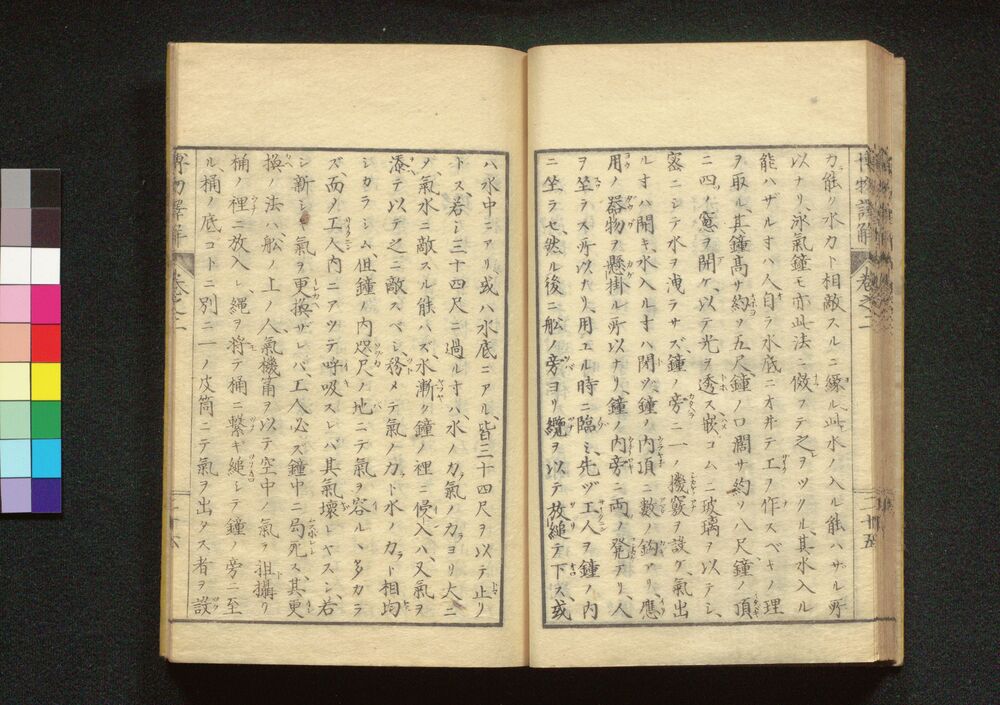 博物譯解 巻之二 二十五
力能ク水力ト相敵スルニ縁ル此水ノ入ル能ハザル所
以ナリ、泳氣鐘モ亦此法ニ倣フテ之ヲツクル、其水入ル
能ハザルオハ人自ラ水底ニオ井テ工ヲ作スベキノ理
ヲ取ル其鐘高サ約ソ五尺鐘ノ口濶サ約ソ八尺鐘ノ頂
ニ四ノ窓ヲ開ケ、以テ光ヲ透ス嵌コムニ玻璃ヲ以テシ、
密ニシテ水ヲ洩ラサズ、鐘ノ旁ニ一ノ機竅ヲ設ケ氣出
ルオハ開キ、水入ルオハ閉ヅ、鐘ノ内頂ニ數ノ鈎アリ、應
用ノ器物ヲ懸掛ル所以ナリ、鐘ノ内旁ニ兩ノ凳アリ、人
ヲ坐ラス所以ナリ、用エル時ニ臨ミ、先ヅ工人ヲ鐘ノ内
ニ坐ラセ、然ル後ニ舩ノ旁ヨリ纜ヲ以テ放縋テ下ス、或
ハ水中ニアリ或ハ水底ニアル、皆三十四尺ヲ以テ止リ
トス、若シ三十四尺ニ過ルオハ、水ノ力氣ノ力ヨリ大ニ
ノ、氣水ニ敵スル能ハズ水漸ク鐘ノ裡ニ侵入ハ、又氣ヲ
添テ以テ之ニ敵スベシ、務メテ氣ノ力ト水ノ力ト相均
シカラシム但鐘ノ内咫尺ノ地ニテ氣ヲ容ル、多カラ
ズ、而ノ工人内ニアツテ呼吸スレバ其氣壞レヤスシ、若
シ新シキ氣ヲ更換ザレバ、工人必ズ鐘中ニ曷死ス、其更
換ノ法ハ、舩ノ上ノ人、氣機筩ヲ以テ空中ノ氣ヲ抯攝リ
桶ノ裡ニ放入レ繩ヲ将テ桶ニ繫キ縋シテ鐘ノ旁ニ至
ル、桶ノ底コトニ別ニ一ノ皮筒ニテ氣ヲ出タス者ヲ設
博物譯解 巻之二 二十六